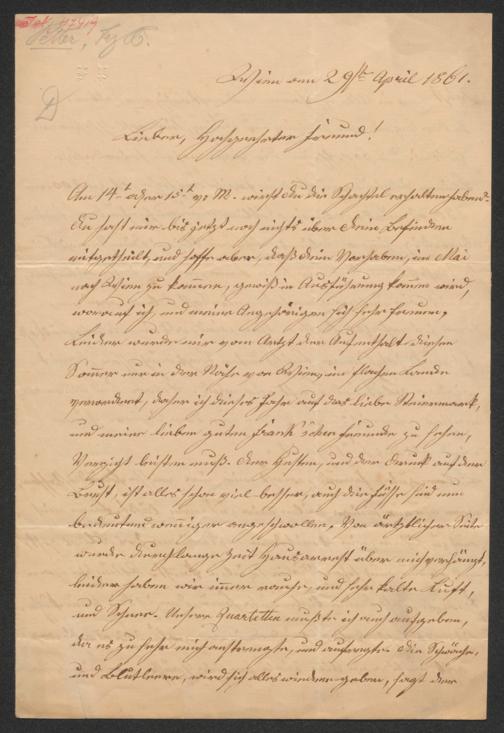 Petter, Frz X.
D
Wien am 29ᵗ April 1861.
Lieber, Hochgeehrter Freund!
Am 14ᵗ oder 15ᵗ v. M. wirst du die Schachtel erhalten haben.
Du hast mir bis jetzt noch nichts über dein Befinden
mitgetheilt, und hoffe aber, daß dein Vorhaben, im Mai
nach Wien zu kommen, gewiß in Ausführung kommen wird,
worauf ich, und meine Angehörigen sich sehr freuen.
Leider wurde mir vom Arzt der Aufenthalt diesen
Sommer nur in der Nähe von Wien, im flachen Lande
verordnet, daher ich dieses Jahr auf das liebe Steiermark,
und meine lieben guten Frank'schen Freunde zu sehen,
Verzicht leisten muß. Der Husten, und der Druck auf der
Brust, ist alles schon viel besser, auch die Füsse sind um
bedeutend weniger angeschwollen. Von ärztlicher Seite
wurde durch lange Zeit Hausarrest über mich verhängt,
leider haben wir immer rauhe, und sehr kalte Luft,
und Schnee. Unsere Quartetten mußte ich auch aufgeben,
da es zu sehr mich anstrengte, und aufregte. Die Schwäche,
und Blutleere, wird sich alles wieder geben, sagt der